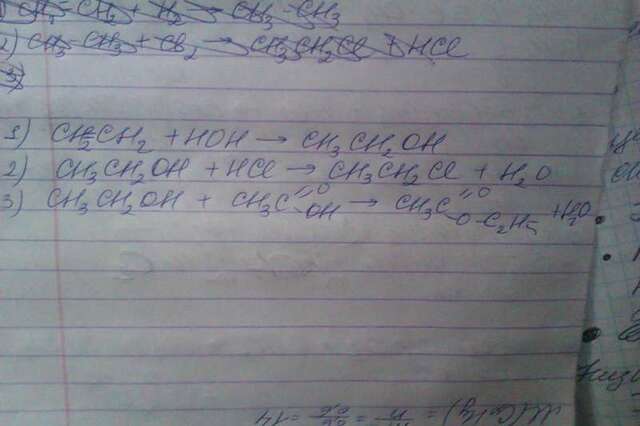 1) CH₂=CH₂ + H₂ → CH₃-CH₃
2) CH₃-CH₃ + Cl₂ → CH₃CH₂Cl + HCl
3)
1) CH₂=CH₂ + HOH → CH₃CH₂OH
2) CH₃CH₂OH + HCl → CH₃CH₂Cl + H₂O
3) CH₃CH₂OH + CH₃C(=O)OH → CH₃C(=O)O-C₂H₅ + H₂O